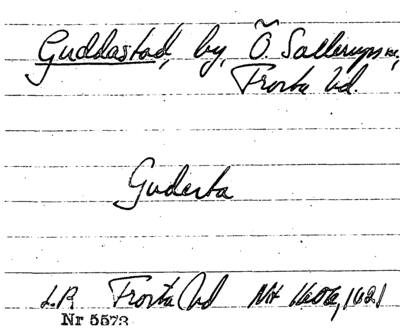 Guddastad, by, Ö. Sallerups sn,
Frosta hd.
Guderta
L.R Frosta hd
Nr 5573